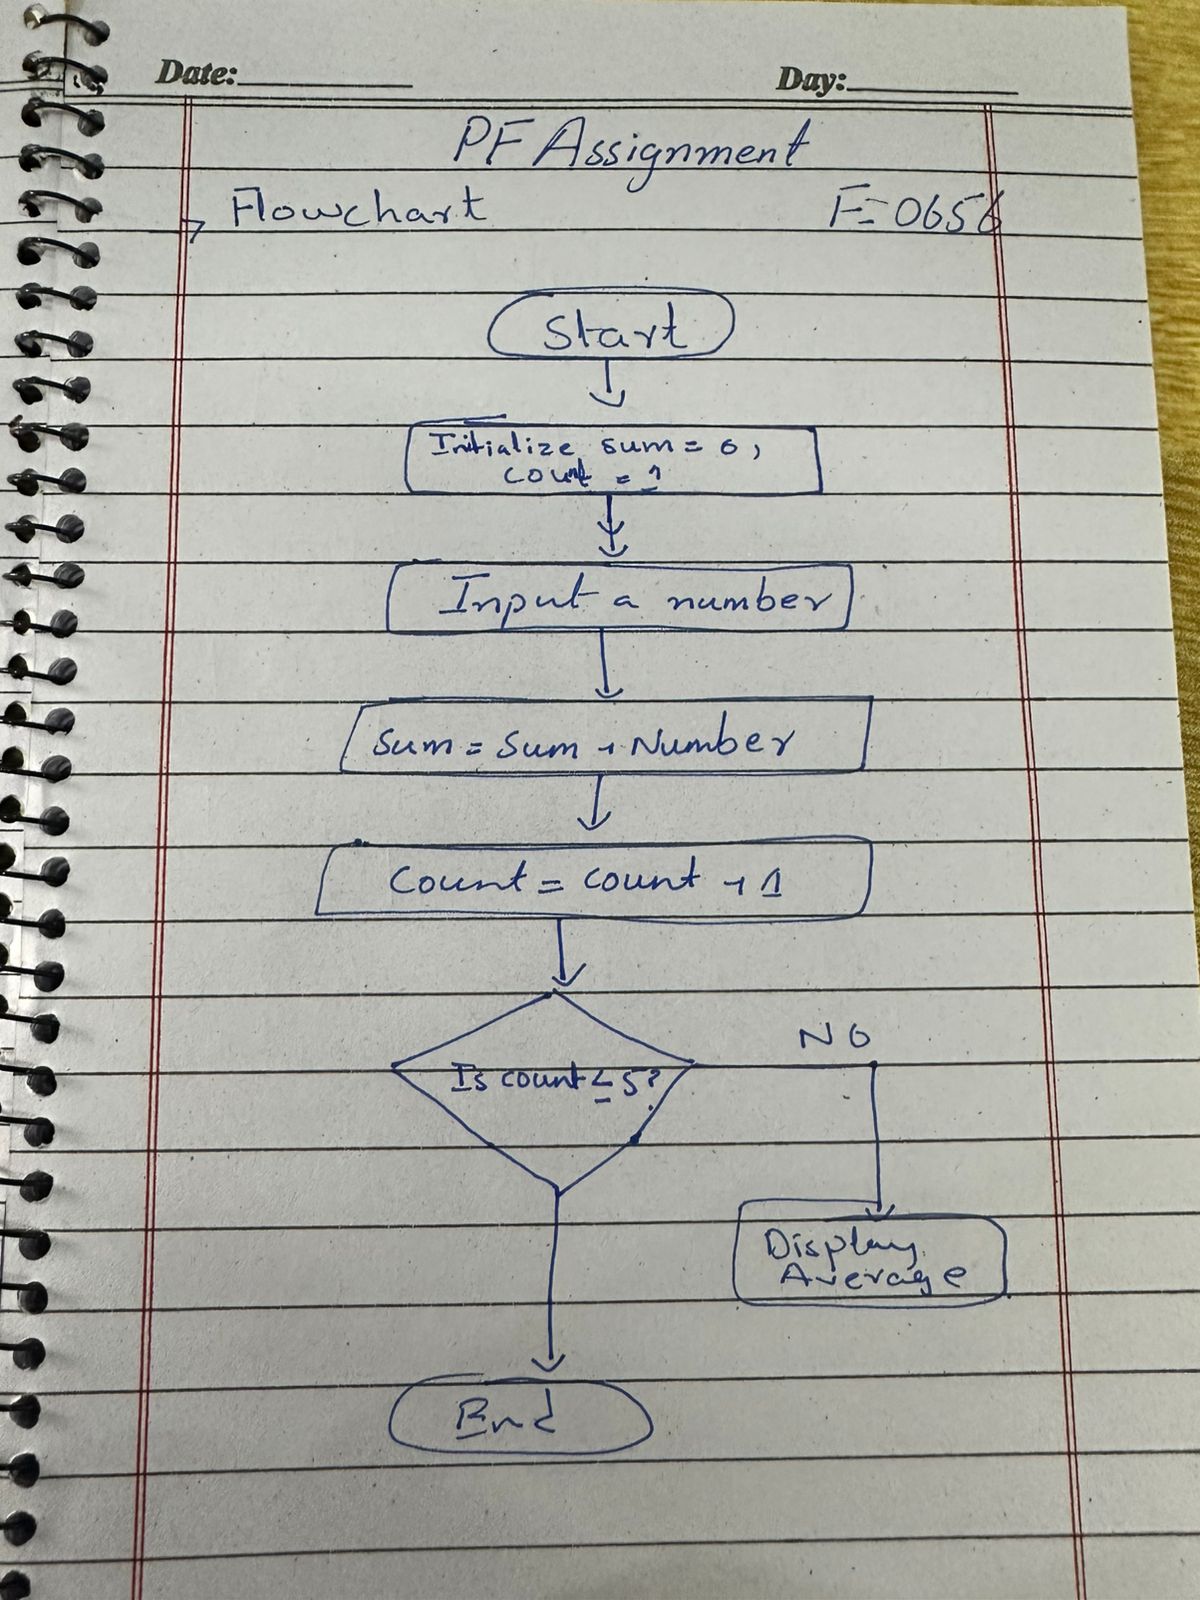 Date:
Day:
PF Assignment
→ Flowchart
F-0656
Start
Initialize sum = 0,
count = 1
Input a number
Sum = Sum + Number
Count = count + 1
Is count ≤ 5?
NO
Display
Average
End